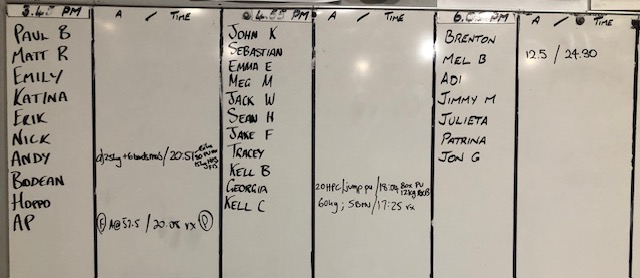 3.45 PM
A / TIME
PAUL B
MATT R
EMILY
KATINA
ERIK
NICK
ANDY
20:51
BODEAN
HOPPO
AP
A@52.5 / 20:05 rx
4.55 PM
A / TIME
JOHN K
SEBASTIAN
EMMA E
MEG M
JACK W
SEAN H
JAKE F
TRACEY
KELL B
GEORGIA
20HPC/jump pu / 18:04 Box PU
12kg
KELL C
60kg; 5BMU / 17:25 rx
6.05 PM
A / TIME
BRENTON
MEL B
12.5 / 24.30
ADI
JIMMY M
JULIETA
PATRINA
JON G